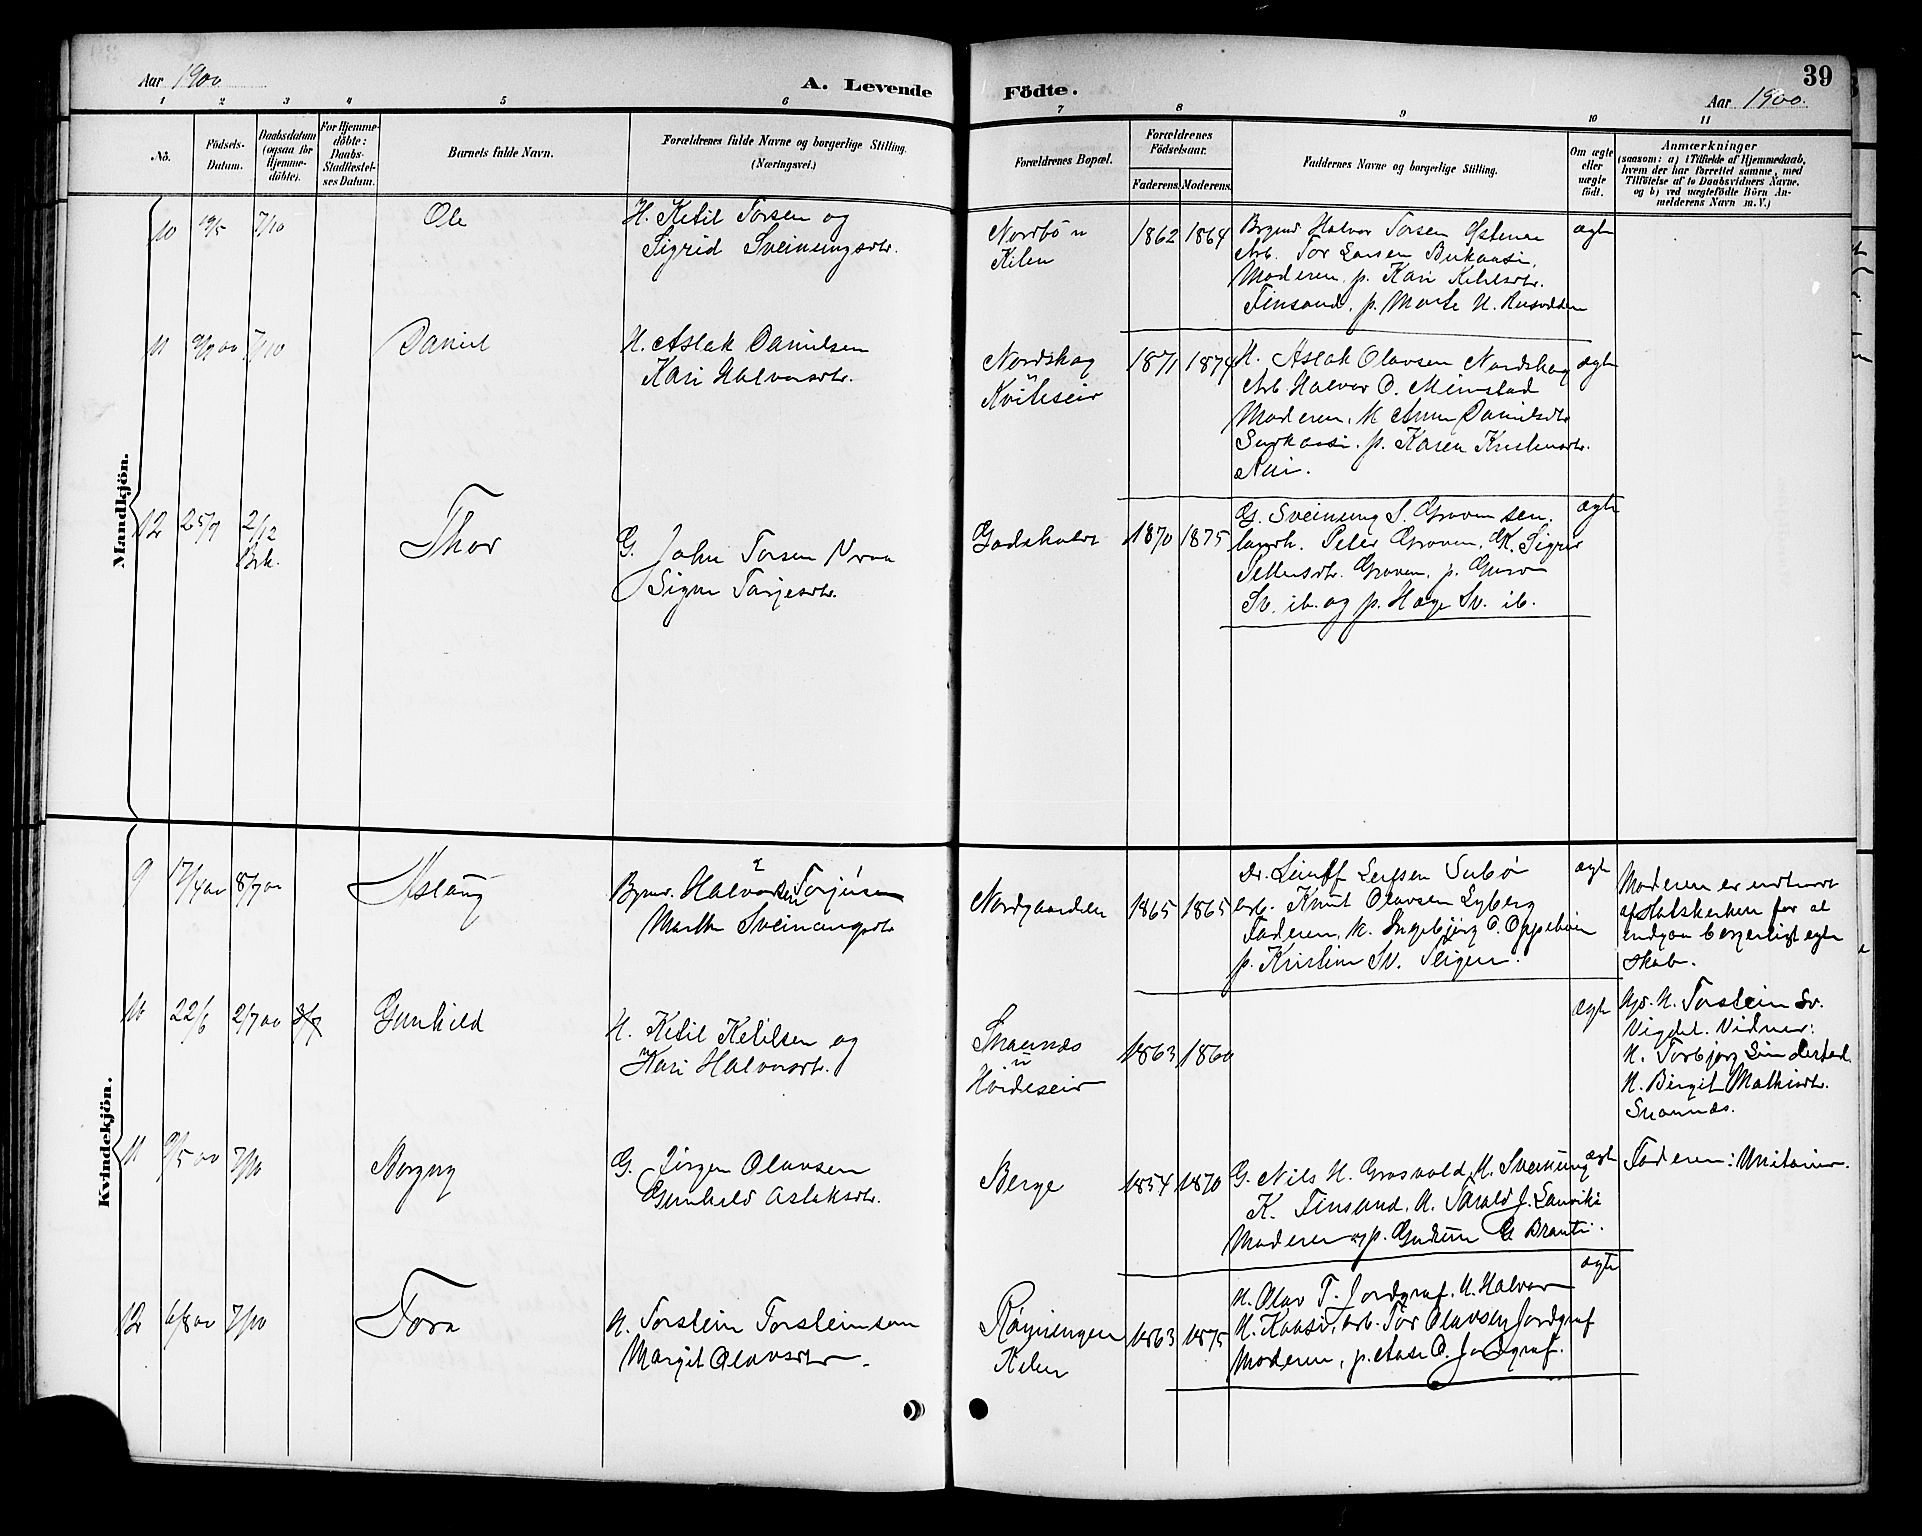 Aar 1900
A. Levende
Födte.
39
Aar 1900.
1 2 3 4 5 6 7 8 9 10 11
No.
Födsels-
Datum.
Daabsdatum
(ogsaa for
Hjemme-
döbte).
For Hjemme-
döbte:
Daabs-
Stadfæstel-
ses Datum.
Barnets fulde Navn.
Forældrenes fulde Navne og borgerlige Stilling.
(Næringsvei.)
Forældrenes Bopæl.
Forældrenes
Födselsaar.
Faderens. Moderens.
Faddernes Navne og borgerlige Stilling.
Om ægte
eller
uægte
födt.
Anmærkninger
(saasom: a) i Tilfælde af Hjemmedaab,
hvem der har forrettet samme, med
Tilföielse af to Daabsvidners Navne.
og b) ved uægtefödte Börn An-
melderens Navn m. V.)
Mandkjön.
10 19/5 7/10 Ole
H. Ketil Torsen og
Sigrid Sveinungsdtr.
Nordbö u
Kilen
1862 1864
Halvor Torsen
Arb. Tor Larsen
Moderen, p. Kari Ketilsdtr.
Finsand, p. Marte H.
ægte
11 7/10 Daniel
H. Aslak Danielsen
Kari Halvorsdtr.
Nordskog
u
Kviteseir
1871 1874
H. Aslak Olavsen Nordskog
Arb. Halvor O.
Moderen, K Anne Danielsdtr
p. Karen Kristensdtr.
ægte
12 25/7 2/12
Brk.
Thor
G. John Torsen Vraa
Signe Tarjesdtr.
1870 1875
G. Sveinung S. Groven sen.
Peter Groven, K. Signe
Groven, p. Guro
Sv. ib. og p. Hæge Sv. ib.
ægte
Kvindekjön.
9 17/4 00 8/7 00 Aslaug
Halvor Torjusen
Marthe Sveinungsdtr
Nordgaarden
1865 1865
Leifsen
arb. Knut Olavsen Lyberg
Faderen, k. Ingebjörg O. Oppeboen
p. Kristine Sv.
ægte
Moderen er udtraadt
af Statskirken for at
indgaa borgerligt egte
skab.
10 22/6 2/7 00 Gunhild
H. Ketil Ketilsen og
Kari Halvorsdtr.
Snarnæs
u
Hvideseir
1863 1860
ægte
H. Torstein Sv.
Vigdel. Vidner:
H. Torbjörg
H. Birgit Mathisdtr.
Snarnæs.
11 9/5 00 7/10 Borgny
G. Jörgen Olavsen
Gunhild Aslaksdtr.
Berge
1854 1870
G. Nils H. Grosvold, H. Sveinung
K. Finsand, H. Tarald J. Sanvik
Moderen og p. Gudrun G.
ægte
Faderen: Unitarier.
12 6/8 00 7/10 Tora
H. Torstein Torsteinsøn
Margit Olavsdtr.
Røynengen
Kilen
1863 1875
H. Olav T. Jordgraf, H. Halvor
H. Kaasi, arb. Tor Olavsen Jordgraf
Moderen, p. Aase O. Jordgraf.
ægte